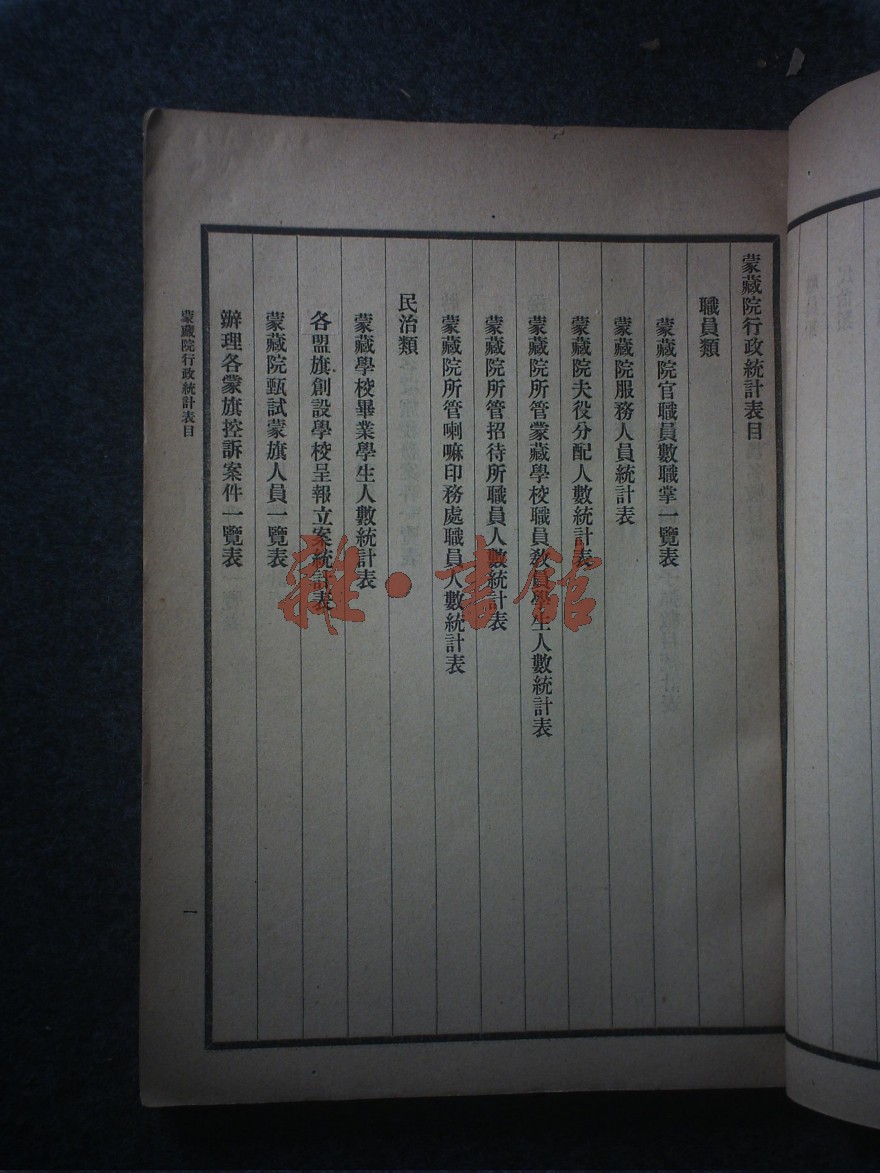 蒙藏院行政統計表目
職員類
蒙藏院官職員數職掌一覽表
蒙藏院服務人員統計表
蒙藏院夫役分配人數統計表
蒙藏院所管蒙藏學校職員教員學生人數統計表
蒙藏院所管招待所職員人數統計表
蒙藏院所管喇嘛印務處職員人數統計表
民治類
蒙藏學校畢業學生人數統計表
各盟旗創設學校呈報立案統計表
蒙藏院甄試蒙旗人員一覽表
辦理各蒙旗控訴案件一覽表
蒙藏院行政統計表目
一
雜·書館